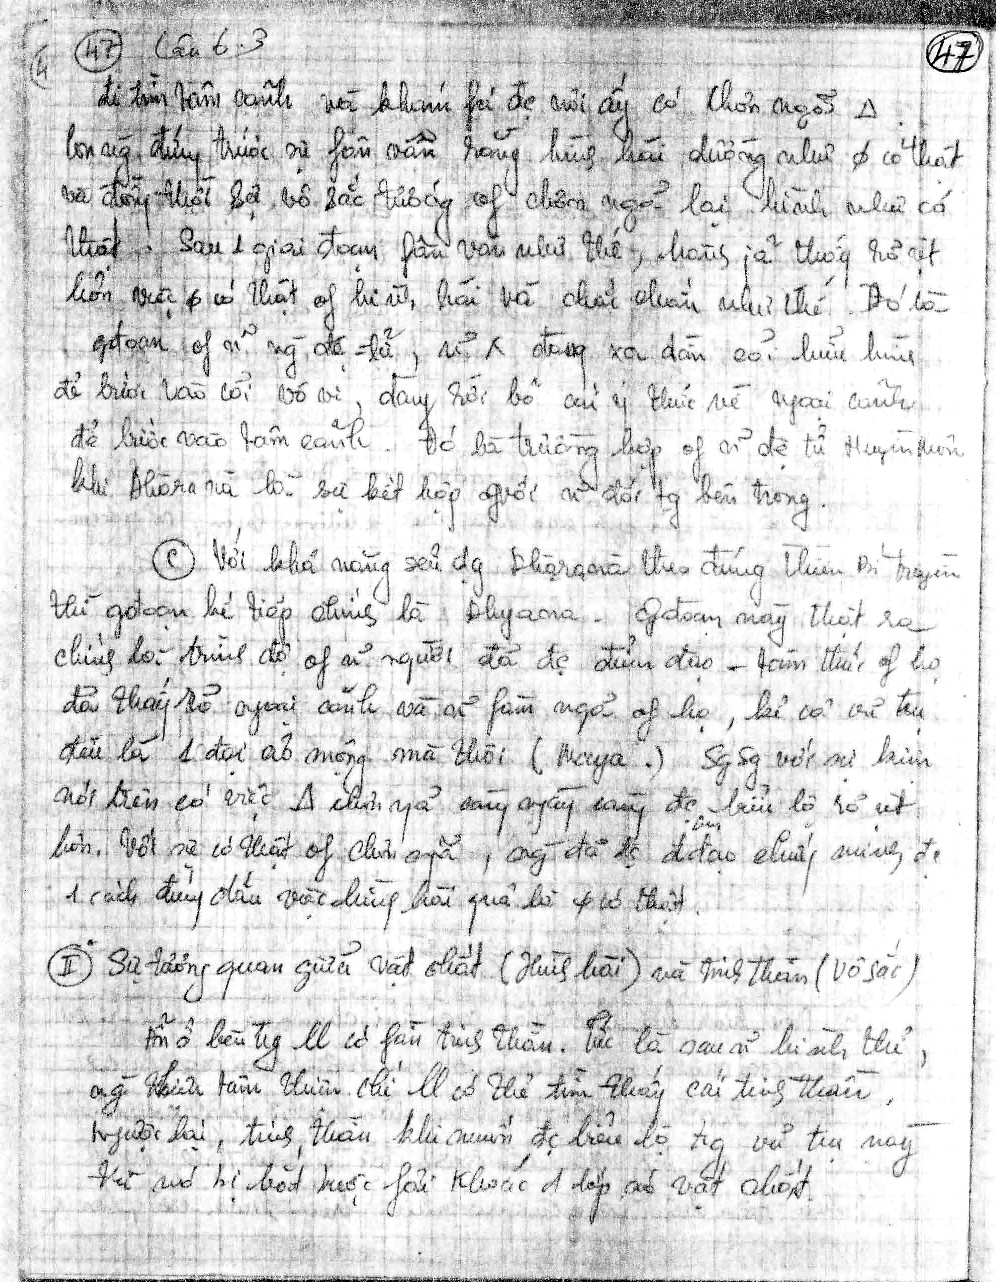 47 Câu 6.3 47
đi tìm tâm cảnh và khám fá đc nơi ấy có chơn ngã Δ.
lòng đứng trước sự fân vân rằng hình hài dường như φ có thật
và đồng thời sự vô sắc tướng of chơn ngã lại hình như có
thật. Sau 1 giai đoạn fân vân như thế, hành jả thấy rõ rệt
hơn việc φ có thật of hình hài và chắc chắn như thế. Đó là
gđoạn of đệ-tử, đang xa dần cõi hữu hình
để bước vào cõi vô vi, đang rời bỏ cái ý thức về ngoại cảnh
để bước vào tâm cảnh. Đó là trường hợp of đệ tử Huyền môn
khi Dhāranā là sự kết hợp với đối tg bên trong.
C Với khả năng sử dg Dhāranā theo đúng Thiền Bí truyền
thì gđoạn kế tiếp chính là Dhyana. Gđoạn này thật ra
chính là trình độ of người đã đc điểm đạo - tâm thức of họ
đã thấy rõ ngoại cảnh và fàm ngã of họ, kể cả vũ trụ
đều là 1 đại ảo mộng mà thôi (Maya.) Sg Sg với sự kiện
nói trên có việc Δ chơn ngã càng ngày càng đc biểu lộ rõ rệt
hơn. Với sự có thật of chơn ngã, ng đã đc đ đạo chứng minh đc
1 cách đúng đắn việc hình hài quả là φ có thật.
II Sự tương quan giữa vật chất (Hình hài) và tinh thần (Vô sắc)
Ẩn ở bên tg ll có fần tinh thần. Tức là sau hình thể,
ng hành tâm thiền chỉ ll có thể tìm thấy cái tinh thần,
Ngược lại, tinh thần khi muốn đc biểu lộ tg vũ trụ này
thì nó bị bắt buộc fải khoác 1 lớp áo vật chất.